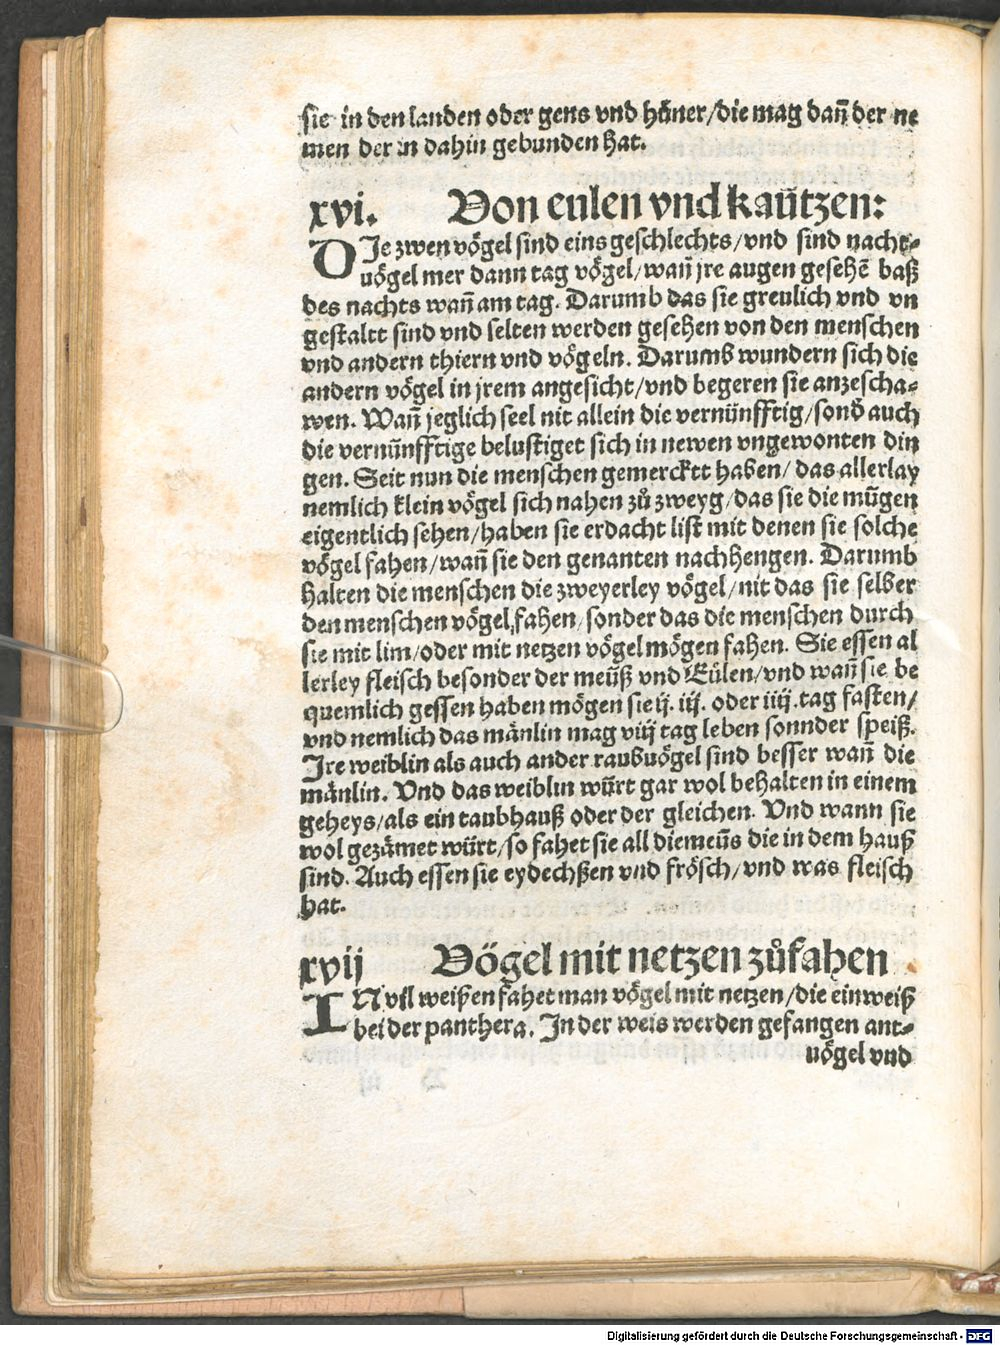 sie in den landen oder gens vnd hůner/die mag dañ der ne
men der in dahin gebunden hat.
xvi. Von eulen vnd kaűtzen:
DIe zwen vögel sind eins geschlechts/vnd sind nacht⸗
vögel mer dann tag vögel/wañ jre augen gesehẽ baß
des nachts wañ am tag. Darumb das sie greulich vnd vn
gestaltt sind vnd selten werden gesehen von den menschen
vnd andern thiern vnd vögeln. Darumb wundern sich die
andern vögel in jrem angesicht/vnd begeren sie anzescha⸗
wen. Wañ jeglich seel nit allein die vernünfftig/sonď auch
die vernűnfftige belustiget sich in newen vngewonten din
gen. Seit nun die menschen gemercktt haben/das allerlay
nemlich klein vögel sich nahen zů zweyg/das sie die műgen
eigentlich sehen/haben sie erdacht list mit denen sie solche
vögel fahen/wañ sie den genanten nachhengen. Darumb
halten die menschen die zweyerley vögel/nit das sie selber
den menschen vögel fahen/sonder das die menschen durch
sie mit lim/oder mit netzen vögel mögen fahen. Sie essen al
lerley fleisch besonder der meűß vnd Eűlen/vnd wañ sie be
quemlich gessen haben mögen sie ij. iij. oder iiij. tag fasten/
vnd nemlich das mänlin mag viij tag leben sonnder speiß.
Ire weiblin als auch ander raubvögel sind besser wañ die
mänlin. Vnd das weiblin wűrt gar wol behalten in einem
geheys/als ein taubhauß oder der gleichen. Vnd wann sie
wol gezämet würt/so fahet sie all die meűs die in dem hauß
sind. Auch essen sie eydechßen vnd frösch/vnd was fleisch
hat.
xvij Vögel mit netzen zůfahen
IN vil weißen fahet man vögel mit netzen/die ein weiß
bei der panthera. In der weis werden gefangen ant⸗
vögel vnd
Digitalisierung gefördert durch die Deutsche Forschungsgemeinschaft - DFG